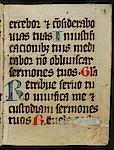 ercebor et considerabo
uias tuas In iustifi
cationib; tuis medi
tabor nō obliuiscar
sermones tuos Gla
Retribue seruo tu
o uiuifica me et
custodiam sermones
tuos Reuela